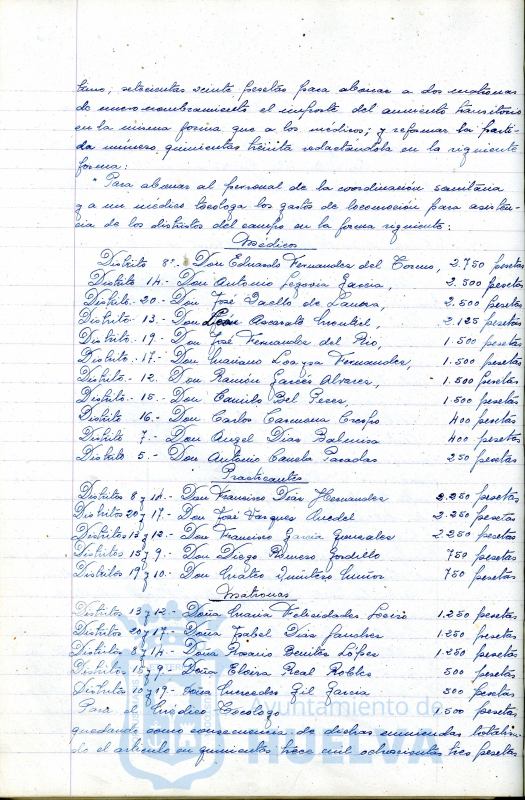 setecientas veinte pesetas para abonar a dos matronas
de nuevo nombramiento el importe del aumento transitorio
en la misma forma que a los médicos; y reformar la parti-
da número quinientas treinta redactandola en la siguiente
forma:
" Para abonar al personal de la coordinación sanitaria
y a un médico tocologo los gastos de locomoción para asisten-
cia de los distritos del campo en la forma siguiente:
Médicos
Distrito 8º.- Don Eduardo Fernandez del Torno, 2.750 pesetas
Distrito 14.- Don Antonio Segovia Garcia, 2.500 pesetas
Distrito.-20.- Don José Coello de 2.500 pesetas
Distrito.- 13.- Don Leon 2.125 pesetas
Distrito.- 19.- Don José Fernandez del Rio, 1.500 pesetas
Distrito.- 17.- Don Mariano Loaysa Fernandez, 1.500 pesetas
Distrito.- 12. Don Ramón Garcés Alvarez, 1.500 pesetas
Distrito.- 15.- Don Camilo Bel 1.500 pesetas
Distrito 16.- Don Carlos Carmona Crespo 400 pesetas
Distrito 7.- Don Angel Dias 400 pesetas
Distrito 5.- Don Antonio Canela Posadas 250 pesetas
Practicantes
Distritos 8 y 14.- Don Francisco Diaz Hernandez 2.250 pesetas
Distritos 20 y 17.- Don José Vazquez 2.250 pesetas
Distritos 13 y 12.- Don Francisco Garcia Gonzalez 2.250 pesetas
Distritos 15 y 9.- Don Diego Romero Gordillo 750 pesetas
Distritos 19 y 10.- Don Mateo Quintero Muñoz 750 pesetas
Matronas
Distritos 13 y 12.- Doña Maria Felicidades 1.250 pesetas
Distritos 20 y 17.- Doña Isabel Dias Sanchez 1.250 pesetas
Distritos 8 y 14.- Doña Rosario Benitez López 1.250 pesetas
Distritos 15 y 9.- Doña Elvira Real Robles 500 pesetas
Distritos 10 y 19.- Doña Mercedes Gil Garcia 500 pesetas
Para el Médico Tocologo 1.500 pesetas
quedando como consecuencia de dichas enmiendas totalizan-
do el articulo en quinientas trece mil ochocientas tres pesetas
Ayuntamiento de
HUELVA